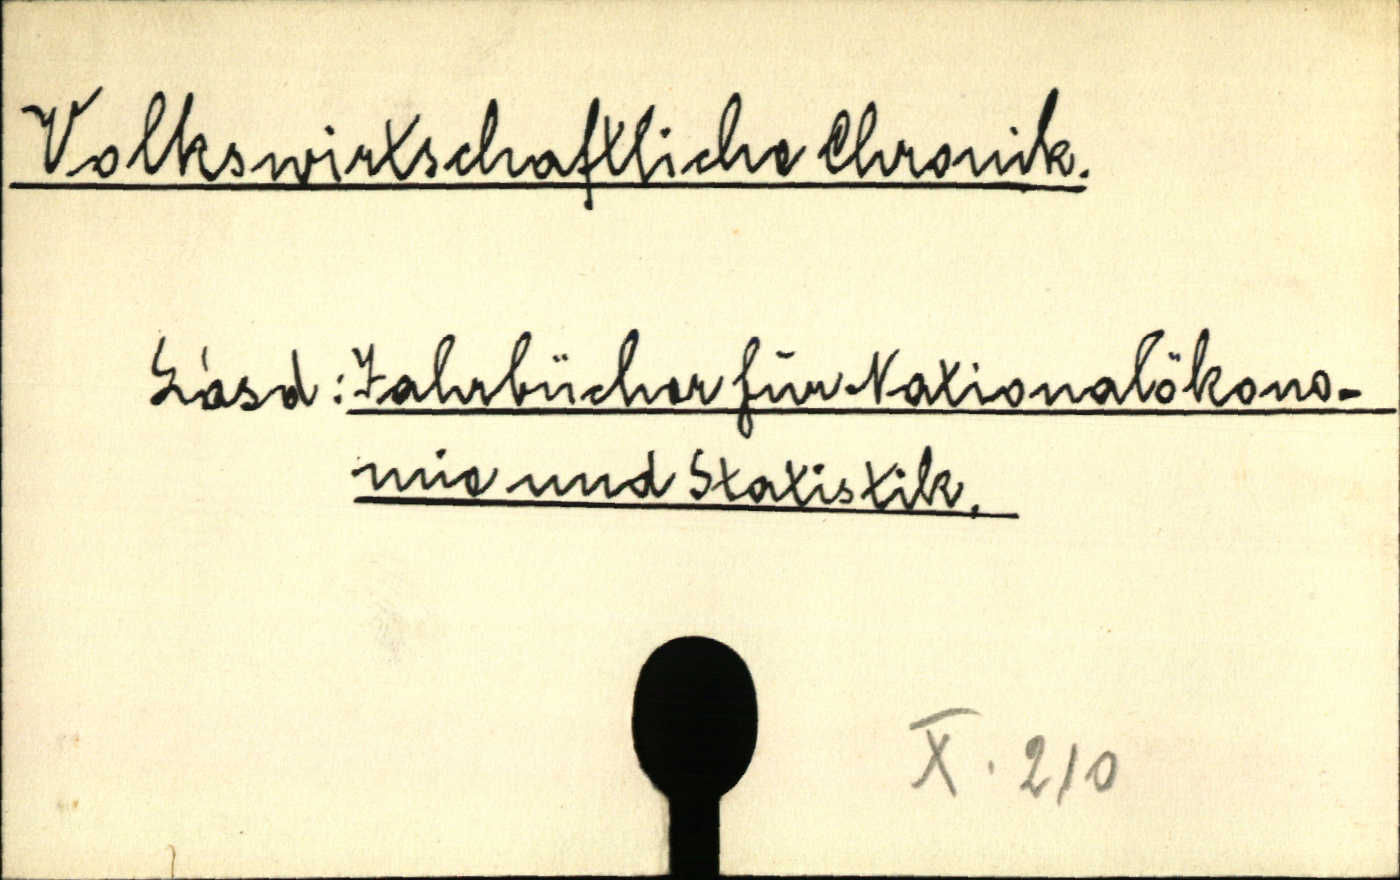 Volkswirtschaftliche Chronik.
Lásd: Jahrbücher für Nationalökono-
mie und Statistik.
X. 210